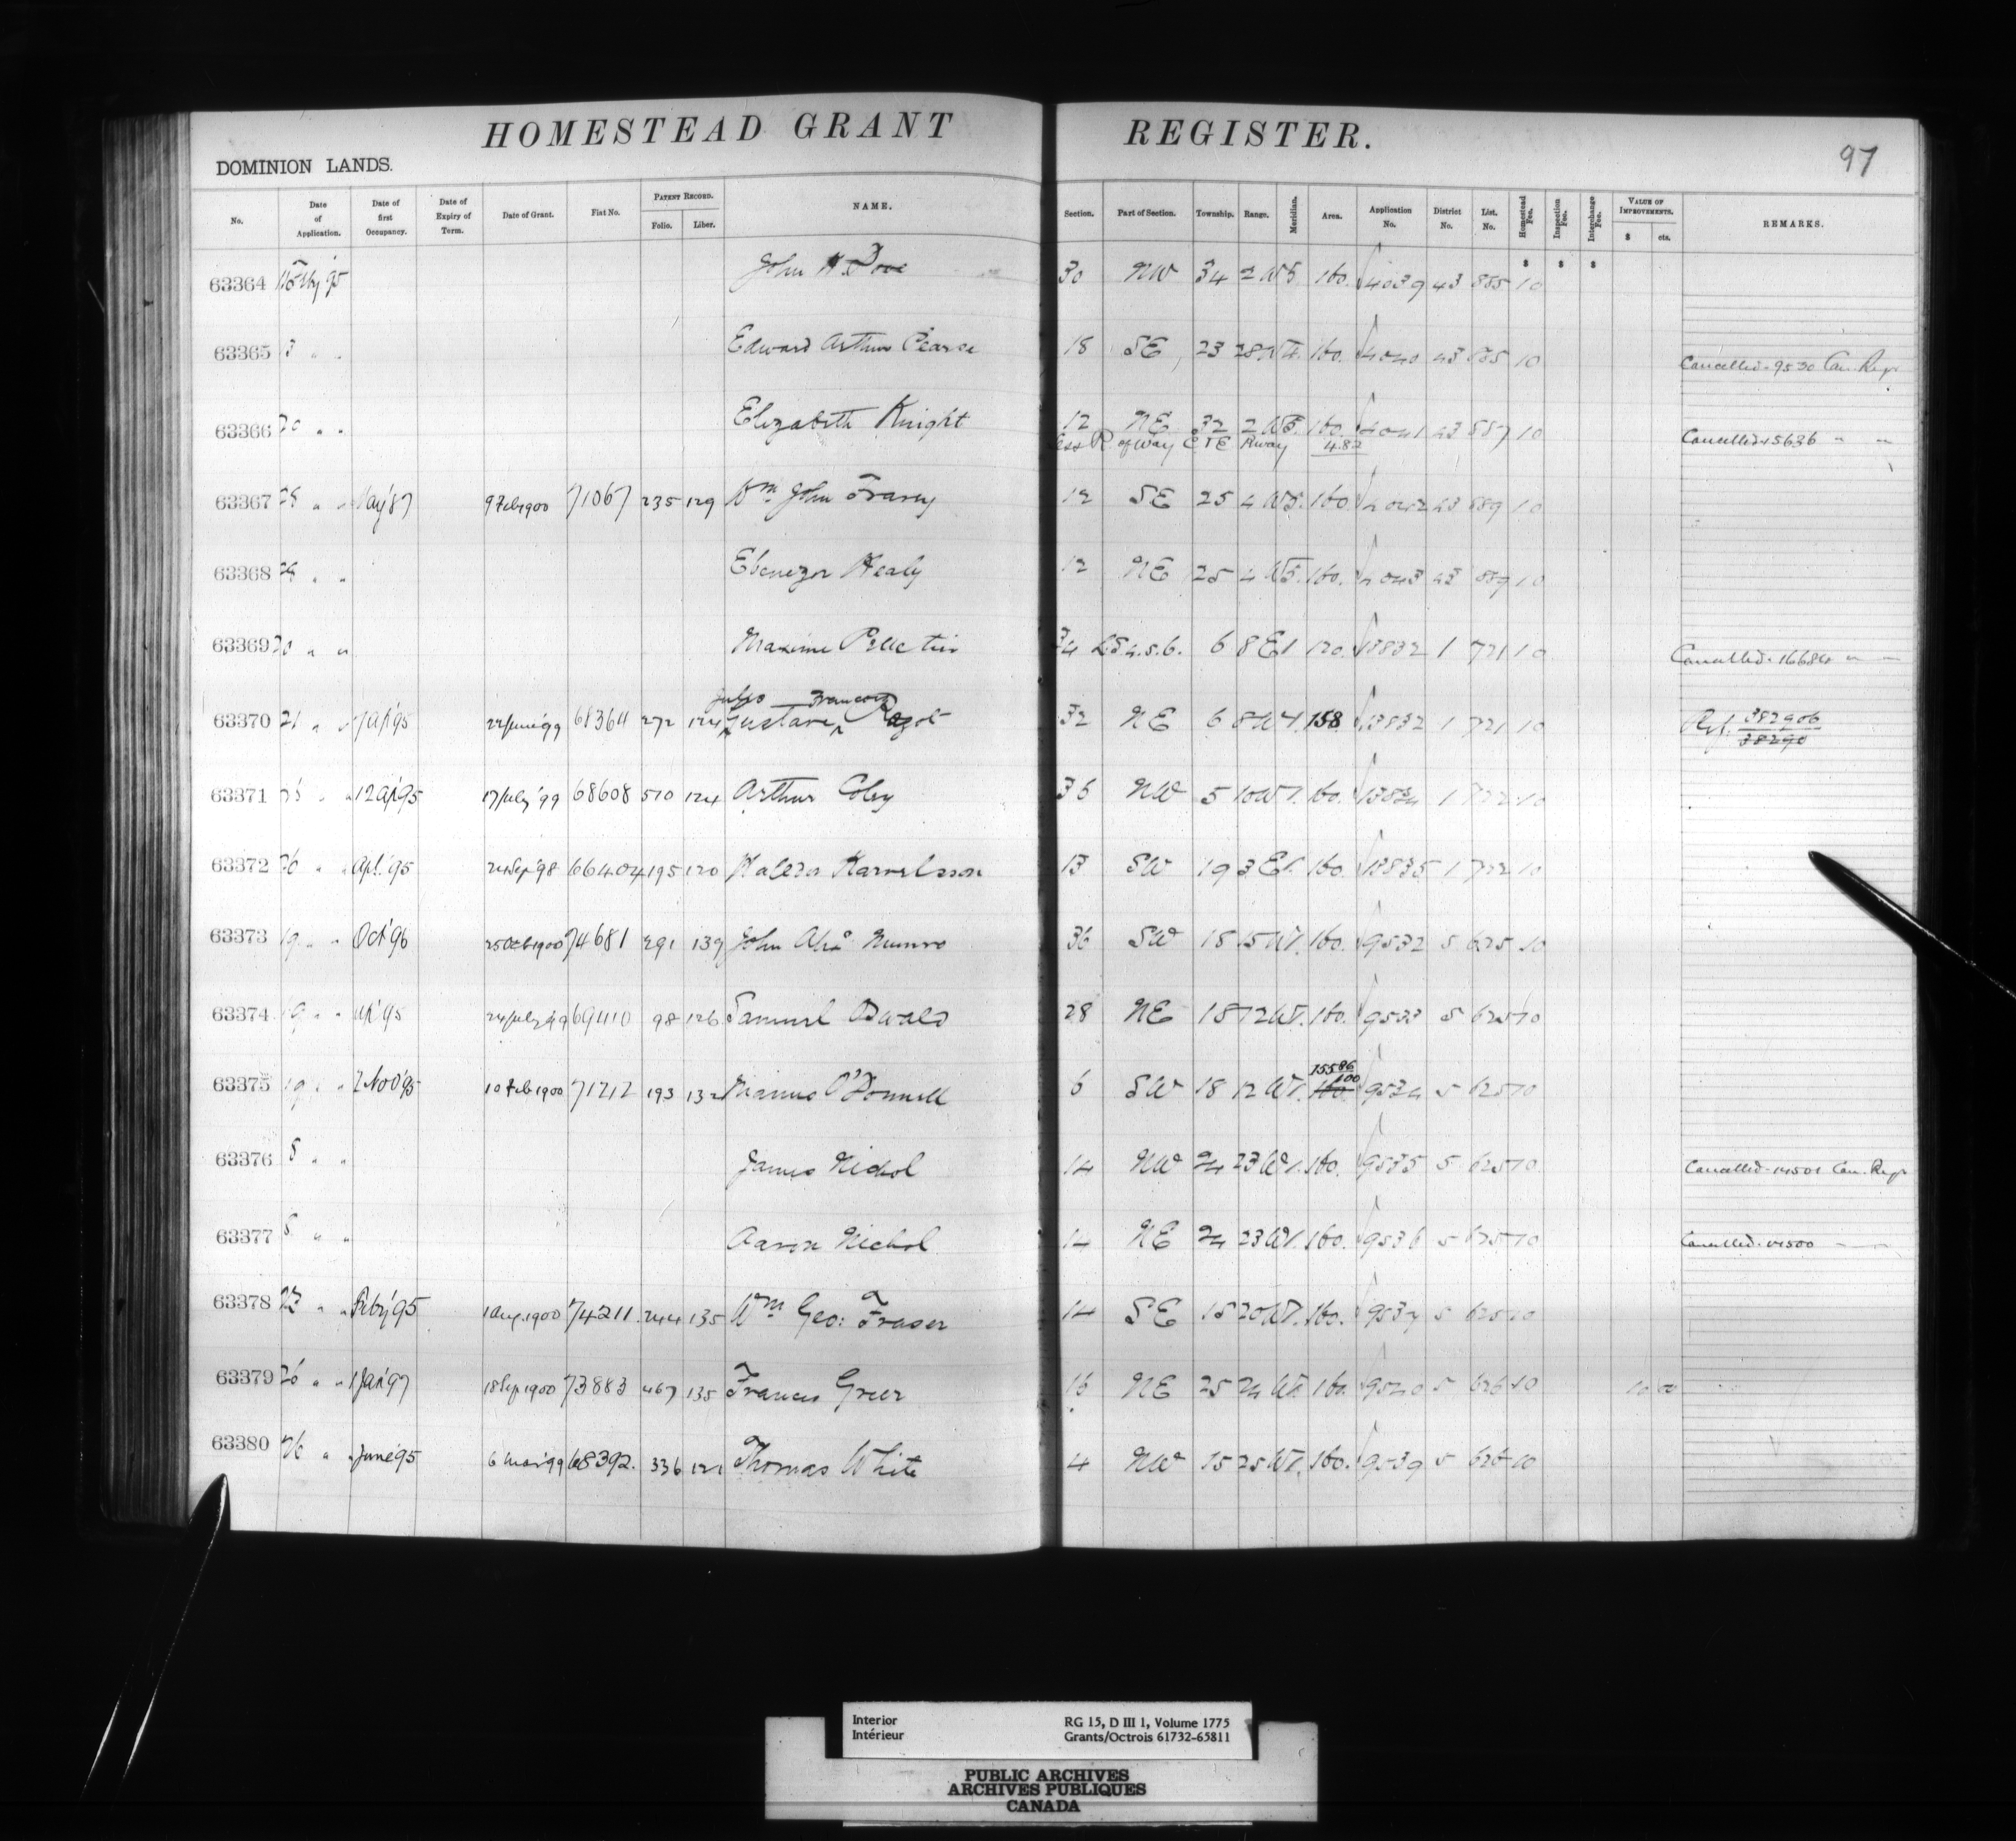 HOMESTEAD GRANT REGISTER.
97
DOMINION LANDS.
No. Date of Application. Date of first Occupancy. Date of Expiry of Term. Date of Grant. Fiat No. PATENT RECORD. Folio. Liber. NAME. Section. Part of Section. Township. Range. Meridian. Area. Application No. District No. List. No. Homestead Fee. Inspection Fee. Interchange Fee. VALUE OF IMPROVEMENTS. $ cts. REMARKS.
63364 John 30 NW 34 2 W5. 160. 4039 43 885 10
63365 Edward Arthur Pearce 18 SE 23 28 W4. 160. 4040 43 885 10 Cancelled 9530 Can. Regr
63366 20 " " Elizabeth Knight 12 NE 32 2 W5. 160. 4041 43 887 10
Less R. of Way C & E Rway 4.82 Cancelled 15636 " "
63367 25 " " May '87 9 Feb 1900 71067 235 129 Wm John Fravey 12 SE 25 4 W5. 160. 4042 43 889 10
63368 25 " " Ebenezer Healy 12 NE 25 4 W5. 160. 4043 43 889 10
63369 20 " " Maxime Pelletier 34 LS 4.5.6. 6 8 E1 120. 13832 1 721 10 Cancelled 16684 " "
Jules Francois
63370 21 " " 22 June '99 68364 272 124 Gustave Ragot 32 NE 6 8 W1 158 13832 1 721 10 Ref. 382906
38290
63371 " " 12 Ap '95 17 July '99 68608 510 124 Arthur Coley 36 NW 5 10 W1. 160. 13834 1 722 10
63372 26 " " Apl. '95 24 Sep '98 66404 195 120 Karvelsson 13 SW 19 3 E1. 160. 13835 1 722 10
63373 19 " " Oct '96 25 Oct 1900 74681 291 139 John Alexr Munro 36 SW 18 15 W1. 160. 9532 5 625 10
63374 19 " " Ap '95 24 July '99 69410 98 126 Samuel Oswald 28 NE 18 12 W1. 160. 9533 5 625 10
63375 19 " " 2 Nov '95 10 Feb 1900 71212 193 132 Manus O'Donnell 6 SW 18 12 W1. 155 86/100 160. 9534 5 625 10
63376 8 " " James Nichol 14 NW 24 23 W1. 160. 9535 5 625 10 Cancelled 14501 Can. Regr
63377 8 " " Aaron Nichol 14 NE 24 23 W1. 160. 9536 5 625 10 Cancelled 14500 " "
63378 " " Feby '95 1 Aug. 1900 74211 244 135 Wm Geo: Fraser 14 SE 15 20 W1. 160. 9537 5 625 10
63379 26 " " Jan '97 18 Sep 1900 73883 467 135 Francis Greer 16 NE 25 24 W1. 160. 9540 5 626 10 10 00
63380 26 " " June '95 6 Mar '99 68392. 336 121 Thomas White 4 NW 15 25 W1. 160. 9539 5 626 10
Interior
Intérieur
RG 15, D III 1, Volume 1775
Grants/Octrois 61732-65811
PUBLIC ARCHIVES
ARCHIVES PUBLIQUES
CANADA